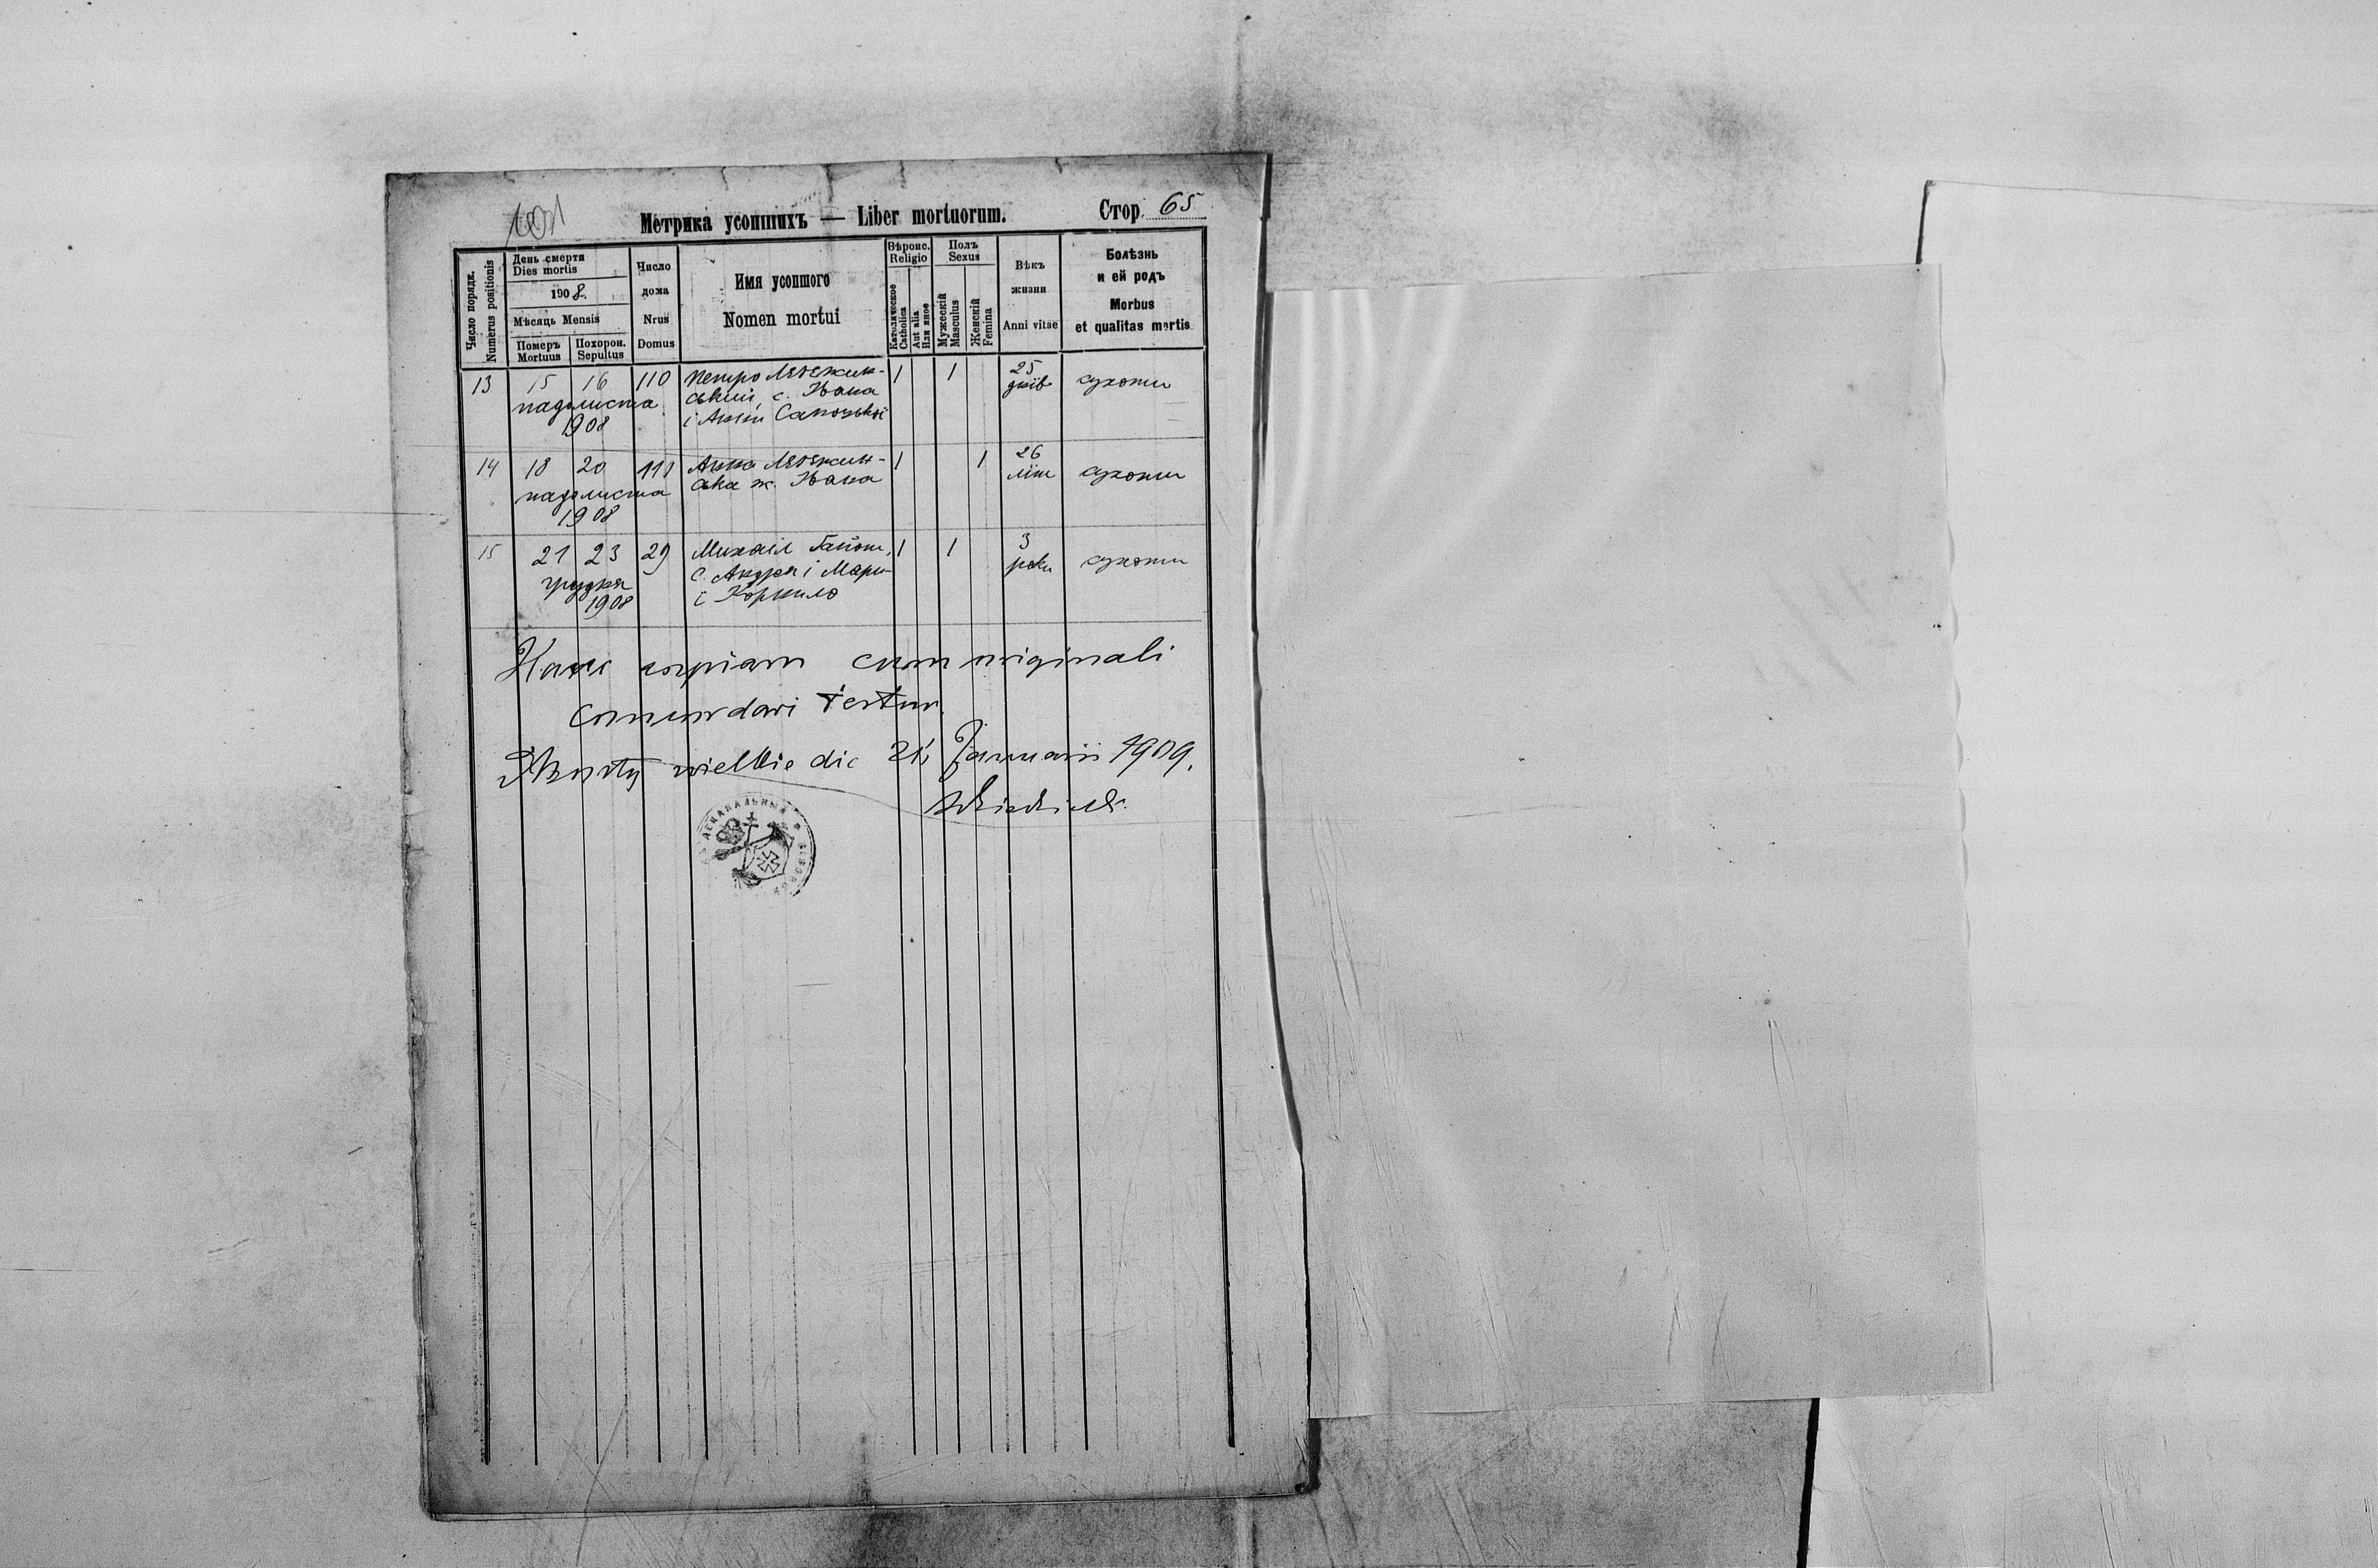 101
Метрика усопшихъ — Liber mortuorum.
Стор. 65
Число порядк.
Numerus positionis
День смерти
Dies mortis
1908.
Мѣсяць Mensis
Померъ
Mortuus
Похорон.
Sepultus
Число
дома
Nrus
Domus
Имя усопшого
Nomen mortui
Вѣроис.
Religio
Католическое
Catholica
Aut alia
Или иное
Полъ
Sexus
Мужескій
Masculus
Женскій
Femina
Вѣкъ
жизни
Anni vitae
Болѣзнь
и ей родъ
Morbus
et qualitas mortis
13 15 16 110 Петро 1 1 25 сухоти
падолиста ський, с. Івана днів
1908 і Анни
14 18 20 111 Анна 1 1 26 сухоти
падолиста ска ж. Івана літ
1908
15 21 23 29 Михаіл 1 1 3 сухоти
грудня с. Андрея і Мари- роки
1908 ї Корнило
Hanc copiam cum originali
concordari testor.
wielkie die 21 Januarii 1909.
ДЕКАНАЛЬНЫЙ